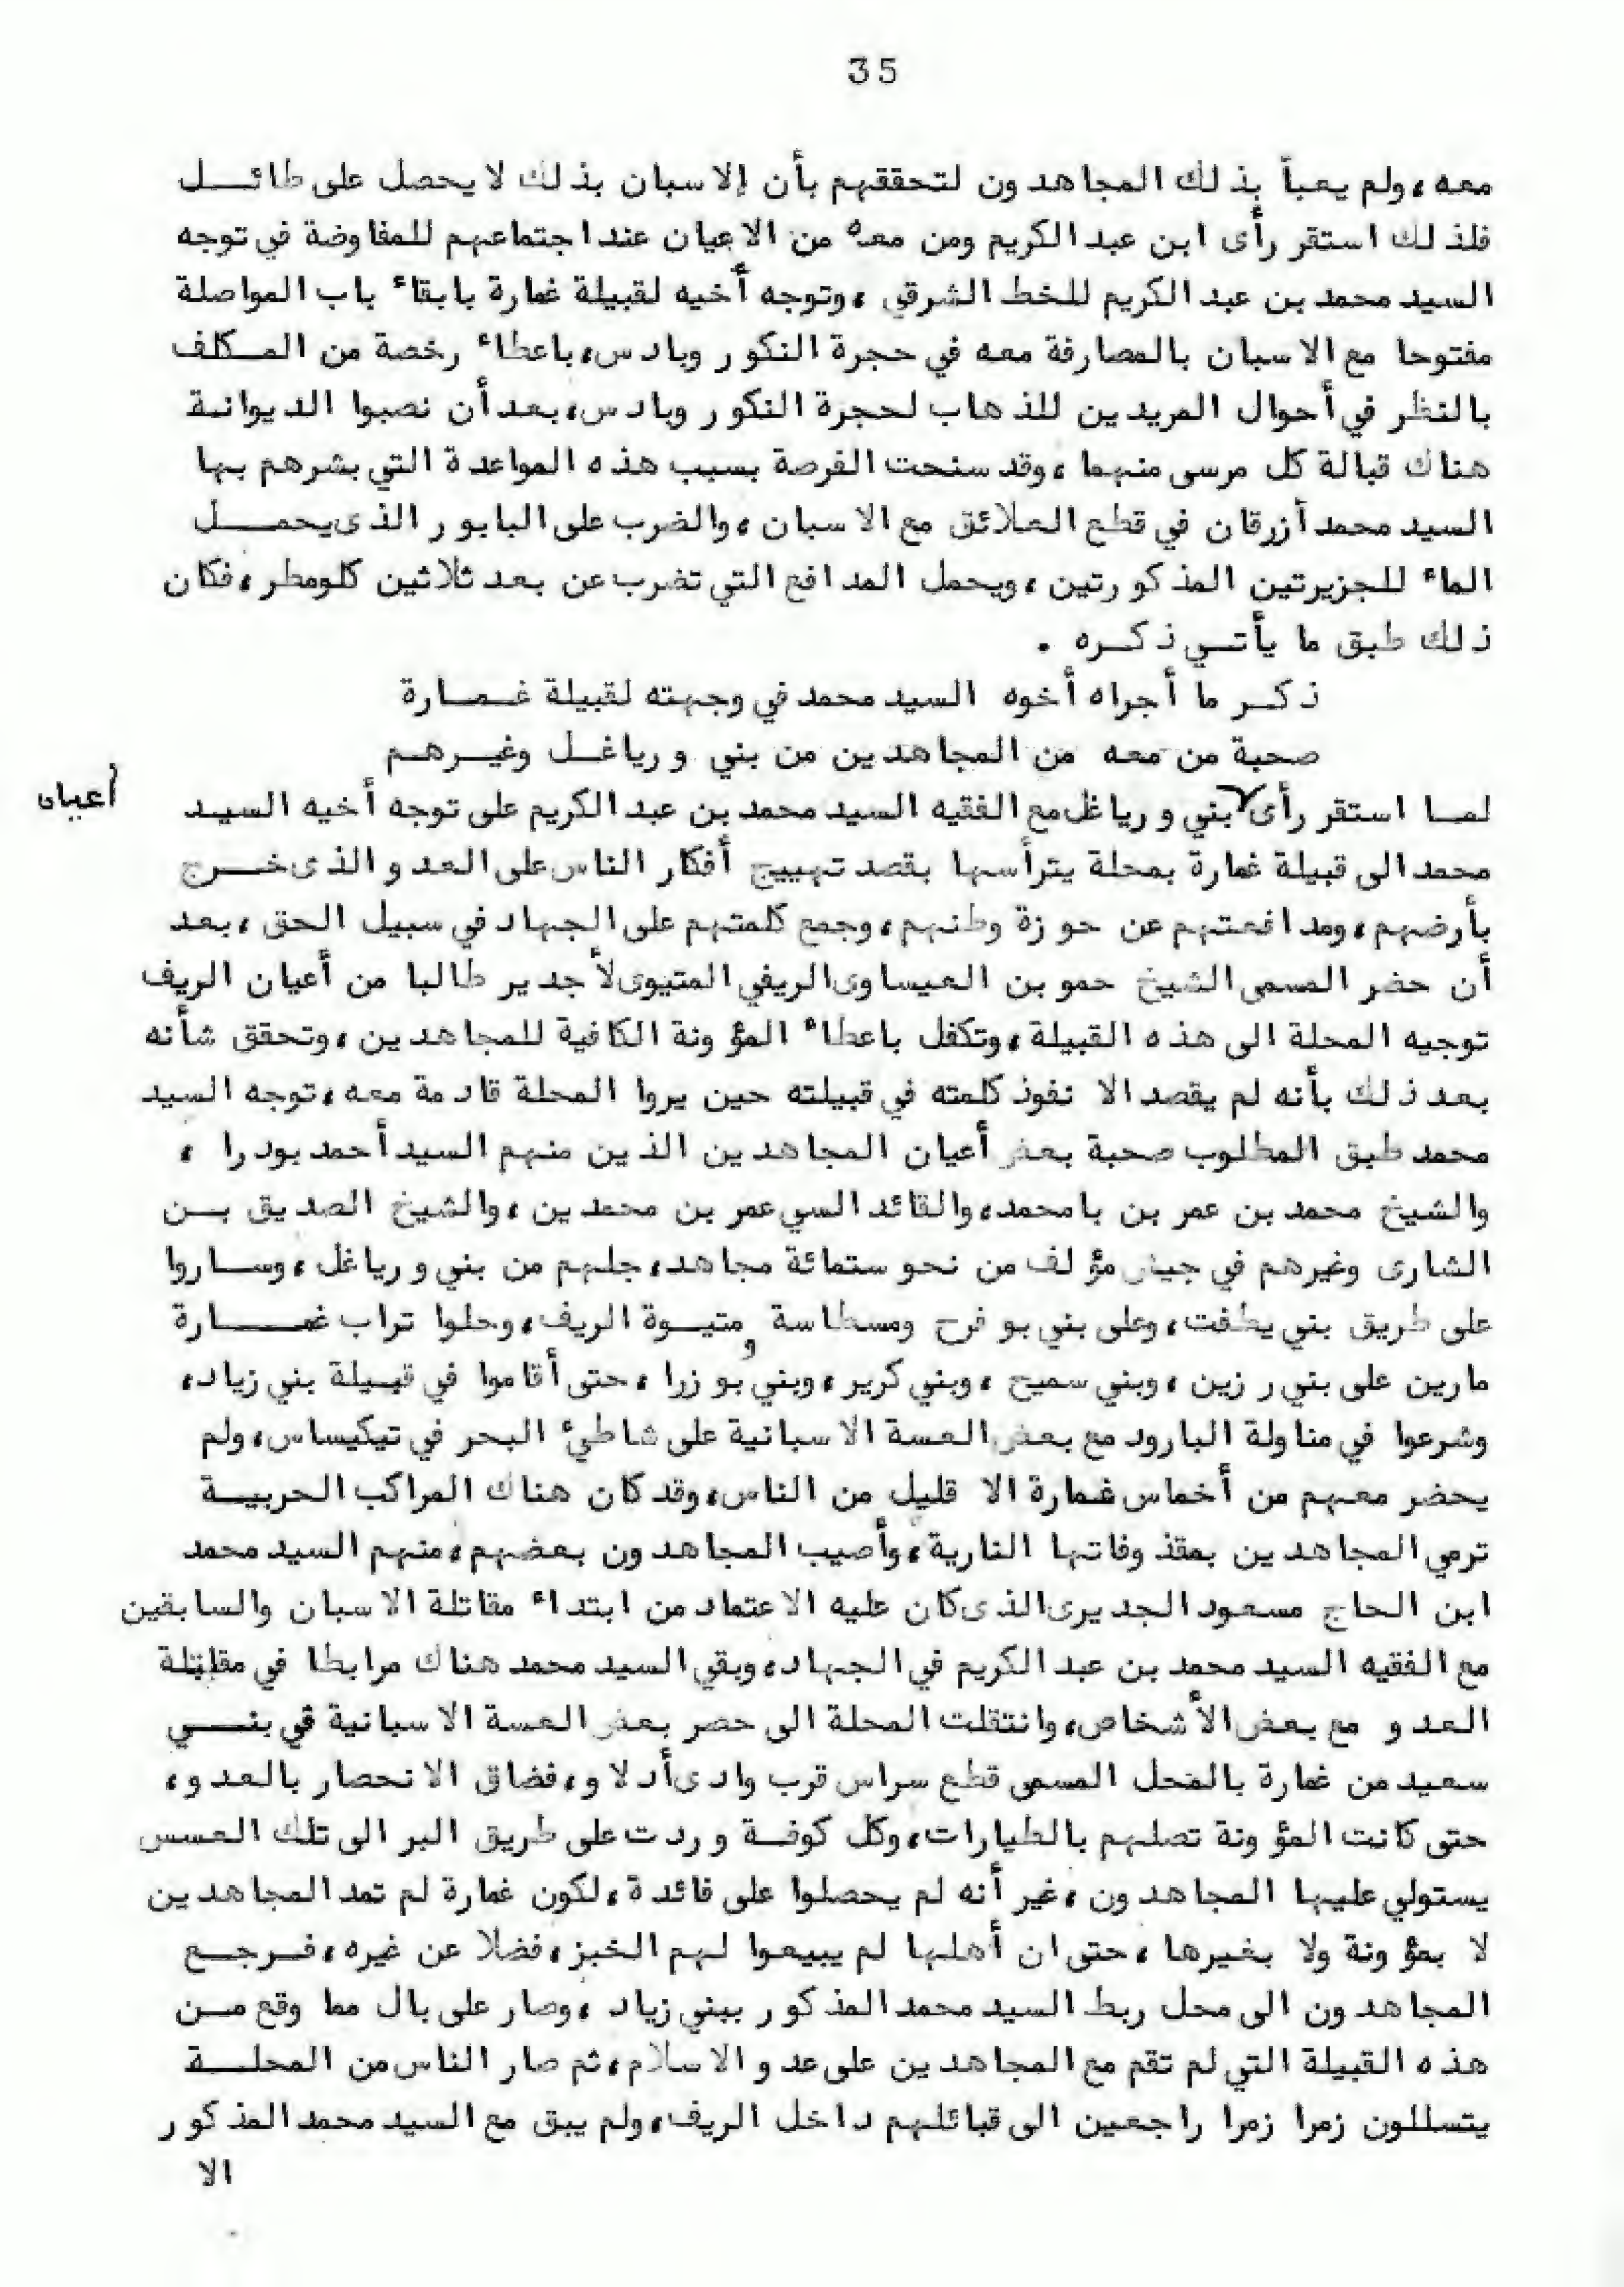 35
معه، ولم يعبأ بذلك المجاهدون لتحققهم بأن إلاسبان بذلك لا يحصل على طائــل
فلذلك استقر رأى ابن عبد الكريم ومن معه من الاعيان عند اجتماعهم للمفاوضة في توجه
السيد محمد بن عبد الكريم للخط الشرقي، وتوجه أخيه لقبيلة غمارة بابقاء باب المواصلة
مفتوحا مع الاسبان بالمصارفة معه في حجرة النكور وبادس، باعطاء رخصة من المــكلف
بالنظر في أحوال المريدين للذهاب لحجرة النكور وبادس، بعد أن نصبوا الديوانة
هناك قبالة كل مرسى منهما، وقد سنحت الفرصة بسبب هذه المواعدة التي بشرهم بها
السيد محمد أزرقان في قطع العلائق مع الاسبان، والضرب على البابور الذى يحمــل
الماء للجزيرتين المذكورتين، ويحمل المدافع التي تضرب عن بعد ثلاثين كلومطر، فكان
ذلك طبق ما يأتــي ذكــره .
ذكــر ما أجراه أخوه السيد محمد في وجهته لقبيلة غــمــارة
صحبة من معه من المجاهدين من بني ورياغــل وغيــرهــم
لمــا استقر رأى بني ورياغل مع الفقيه السيد محمد بن عبد الكريم على توجه أخيه السيــد
أعيان
محمد الى قبيلة غمارة بمحلة يترأسها بقصد تهييج أفكار الناس على العدو الذى خــرج
بأرضهم، ومدافعتهم عن حوزة وطنهم، وجمع كلمتهم على الجهاد في سبيل الحق، بعد
أن حضر المسمى الشيخ حمو بن العيساوى الريفي المتيوى لأجدير طالبا من أعيان الريف
توجيه المحلة الى هذه القبيلة، وتكفل باعطاء المؤونة الكافية للمجاهدين، وتحقق شأنه
بعد ذلك بأنه لم يقصد الا نفوذ كلمته في قبيلته حين يروا المحلة قادمة معه، توجه السيد
محمد طبق المطلوب صحبة بعض أعيان المجاهدين الذين منهم السيد أحمد بودرا ،
والشيخ محمد بن عمر بن بامحمد، والقائد السي عمر بن محمدين، والشيخ الصديق بــن
الشارى وغيرهم في جيش مؤلف من نحو ستمائة مجاهد، جلهم من بني ورياغل، وســاروا
على طريق بني يطفت، وعلى بني بو فرح ومسطاسة ومتيــوة الريف، وحلوا تراب غمــارة
مارين على بني رزين، وبني سميح، وبني كرير، وبني بو زرا، حتى أقاموا في قبيلة بني زياد،
وشرعوا في مناولة البارود مع بعض العسة الاسبانية على شاطيء البحر في تيكيساس، ولم
يحضر معهم من أخماس غمارة الا قليل من الناس، وقد كان هناك المراكب الحربيــة
ترمي المجاهدين بمقذوفاتها النارية، وأصيب المجاهدون بعضهم، منهم السيد محمد
ابن الحاج مسعود الجديرى الذى كان عليه الاعتماد من ابتداء مقاتلة الاسبان والسابقين
مع الفقيه السيد محمد بن عبد الكريم في الجهاد، وبقي السيد محمد هناك مرابطا في مقاتلة
العدو مع بعض الأشخاص، وانتقلت المحلة الى حصر بعض العسة الاسبانية في بنــي
سعيد من غمارة بالمحل المسمى قطع سراس قرب وادى أدلاو، فضاق الانحصار بالعدو،
حتى كانت المؤونة تصلهم بالطيارات، وكل كوفــة وردت على طريق البر الى تلك العسس
يستولي عليها المجاهدون، غير أنه لم يحصلوا على فائدة، لكون غمارة لم تمد المجاهدين
لا بمؤونة ولا بغيرها، حتى ان أهلها لم يبيعوا لهم الخبز، فضلا عن غيره، فــرجــع
المجاهدون الى محل ربط السيد محمد المذكور ببني زياد، وصار على بال مما وقع مــن
هذه القبيلة التي لم تقم مع المجاهدين على عدو الاسلام، ثم صار الناس من المحلــة
يتسللون زمرا زمرا راجعين الى قبائلهم داخل الريف، ولم يبق مع السيد محمد المذكور
الا